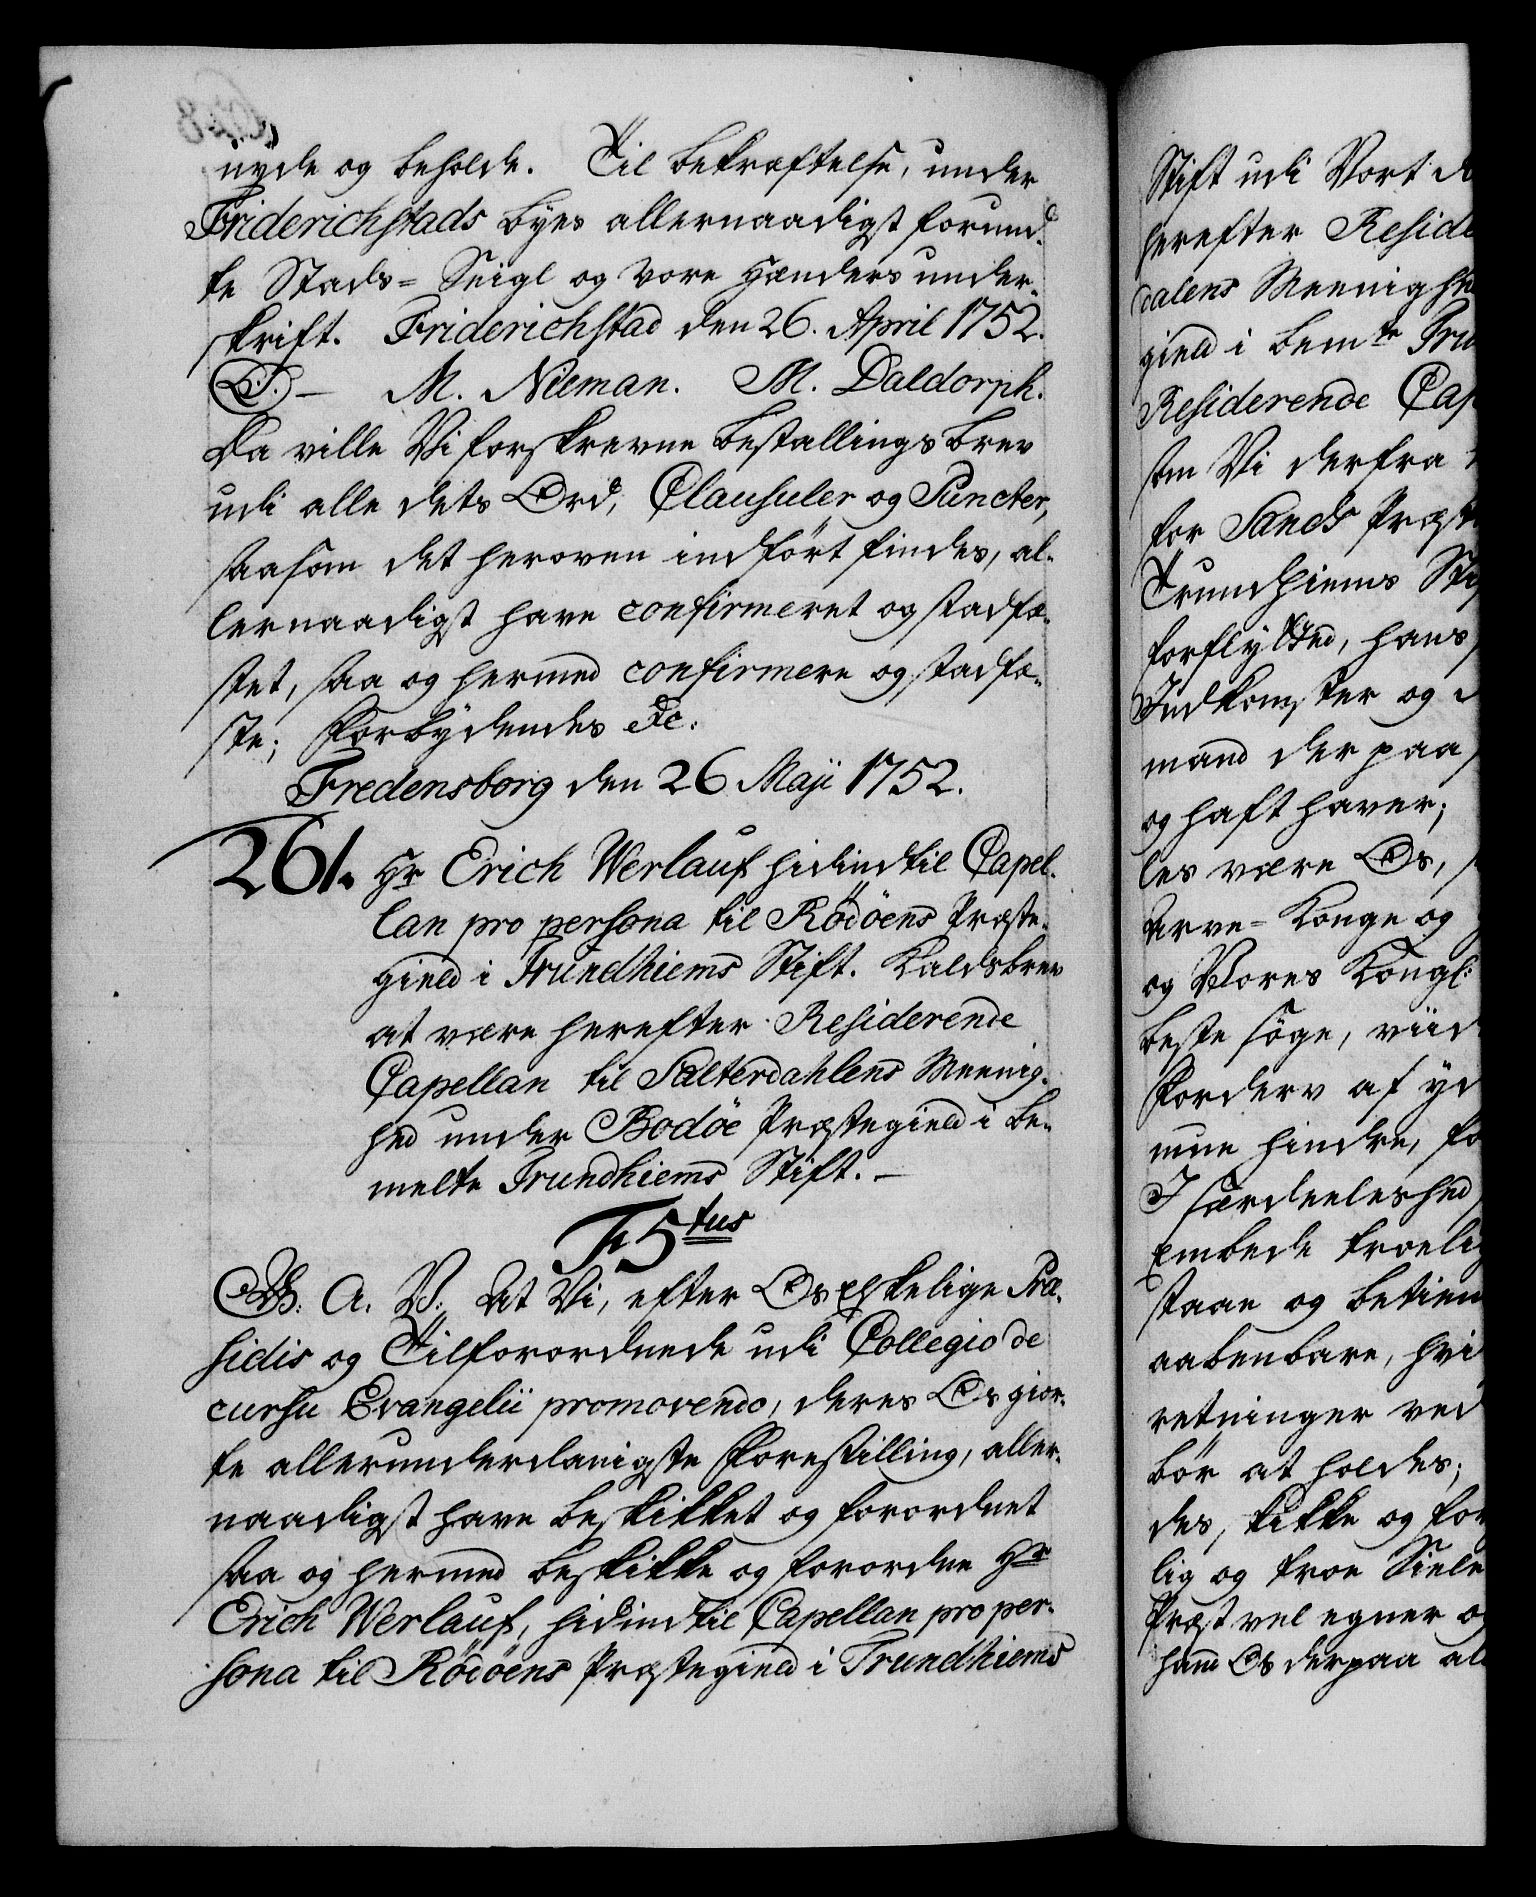 nyde og beholde. Til bekræftelse, under
Friderichstads byes allernaadigst forund¬
te Stads= Seigl og vore hænders under¬
skrift. Friderichstad den 26. April 1752.
L.S. – M. Nieman. M. Daldorph.
Da ville Vi forskrevne bestallings brev
udi alle dets Ord, Clausuler og Puncter,
saasom det heroven indført findes, al¬
lernaadigst have confirmeret og stadfæ¬
stet, saa og hermed confirmere og stadfæ¬
ste; Forbydendes &c.
Fredensborg den 26 Maji 1752.
261. Hr Erich Werlauf hidindtil Capel¬
lan pro persona til Rødøens Præste¬
gield i Trundhiems Stift. Kaldsbrev
at være herefter Residerende
Capellan til Salterdahlens Meenig¬
hed under Bodøe Præstegield i be¬
melte Trundhiems Stift. –
F5tus
G. A. V: At Vi, efter Os Elskelige Præ¬
sidis og Tilforordnede udi Collegio de
cursu Evangelii promovendo, deres Os gior¬
te allerunderdanigste Forestilling, aller¬
naadigst have beskikket og forordnet
saa og hermed beskikke og forordne Hr
Erich Werlauf, hidindtil Capellan pro per¬
sona til Rødøens Præstegield i Trundhiems
Stift udi Vort
herefter
dalens
gield i bemte
Residerende
som Vi derfra
for Sands
Trundhiems
forflytted, hans
Indkomster og
mand der paa
og haft haver;
les være Os,
Arve= Konge og
og Vores Kongl:
beste søge,
Forderv af
mue hindre,
I særdeeleshed
Embede
staae og
aabenbare,
retninger ved
bør at holdes;
des, skikke og
lig og troe
Præst vel egner
hand Os derpaa